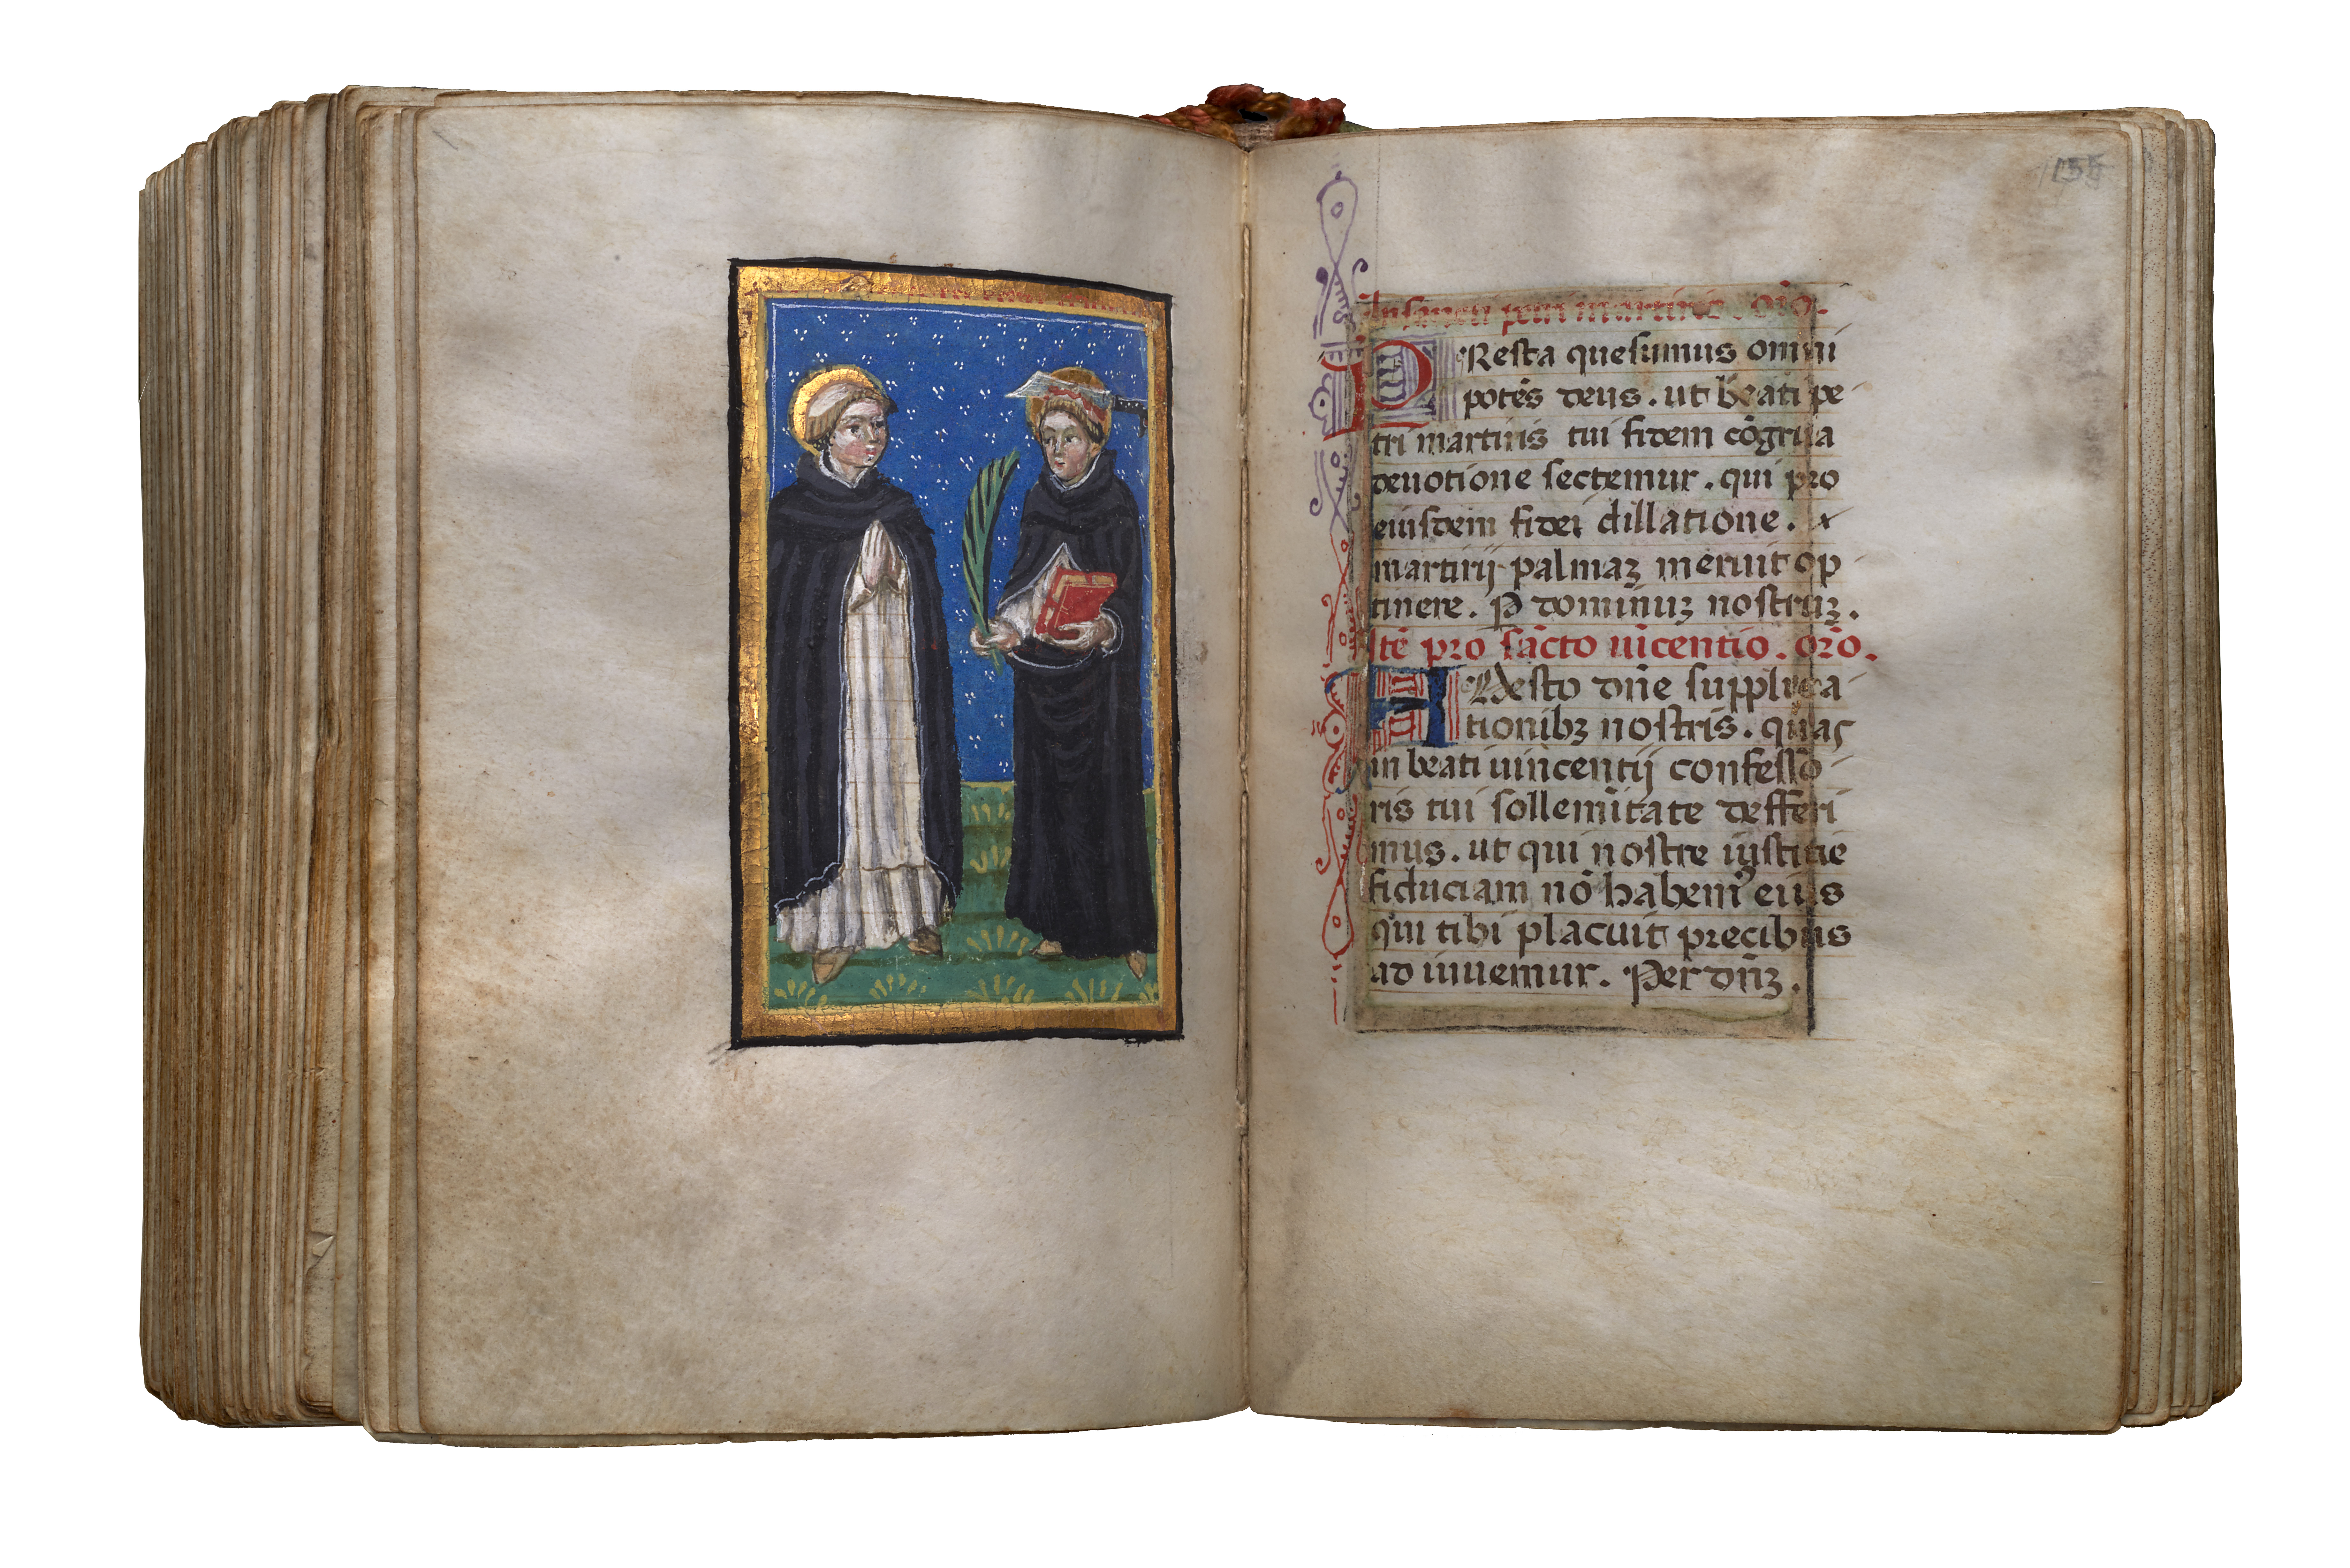 sancti petri martiris . orō.
PResta quesumus omni
potēs deus . ut beati pe-
tri martiris tui fidem cōgrua
deuotione sectemur . qui pro
eiusdem fidei dillatione .
martirij palmaʒ meruit op-
tinere . P dominuʒ nostruʒ .
Itē pro sācto uīcentio . orō .
ADesto dn̄e supplica-
tionibʒ nostris . quas
in beati uincentij confesso-
ris tui sollem̄itate defferi
mus . ut qui nostre iustitie
fiduciam nō habemꝰ eius
qui tibi placuit precibus
ad iuuemur . Per dn̄ʒ .